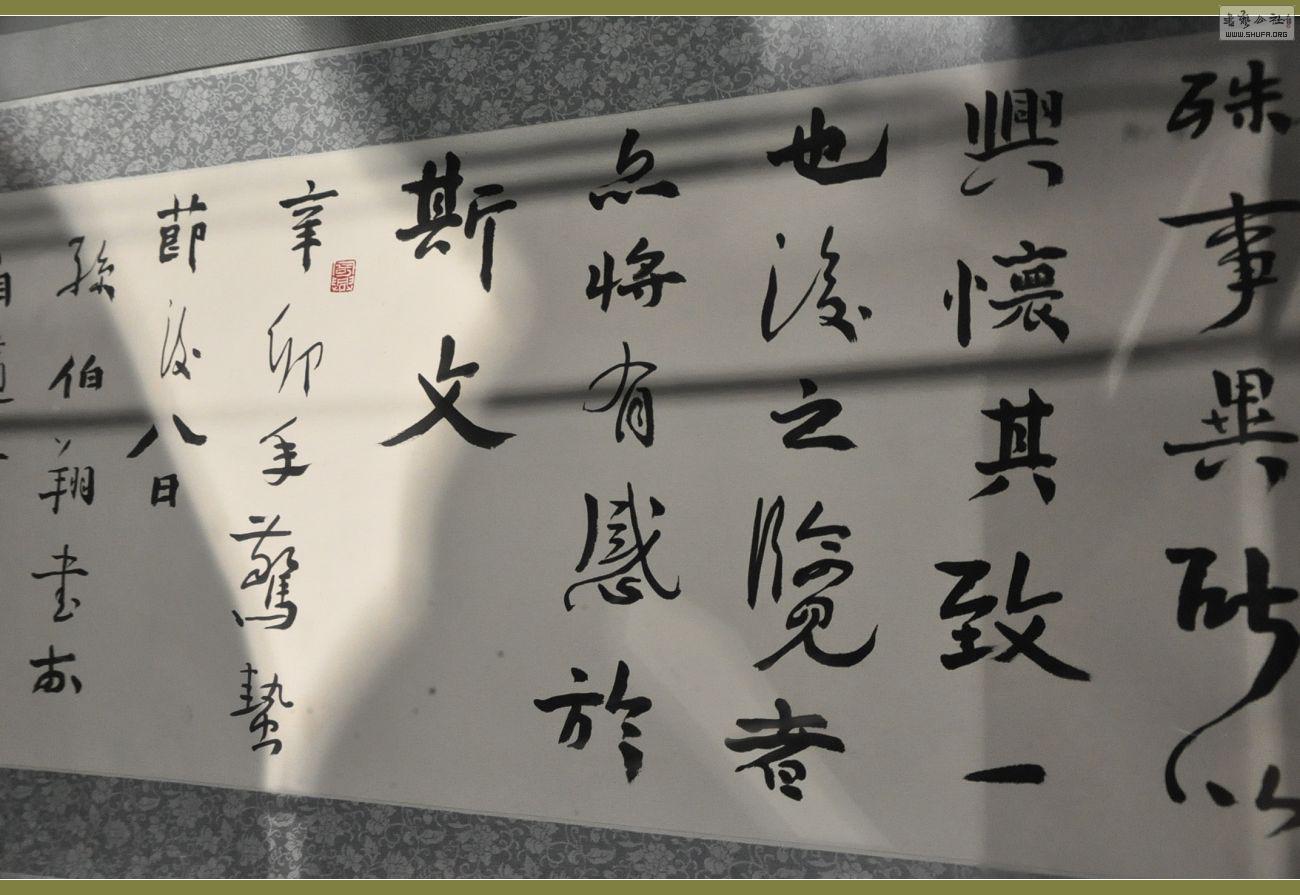 殊事異所以
興懷其致一
也後之覽者
亦將有感於
斯文
辛卯年驚蟄
節後八日
孫伯翔書於
書藝公社
WWW.SHUFA.ORG